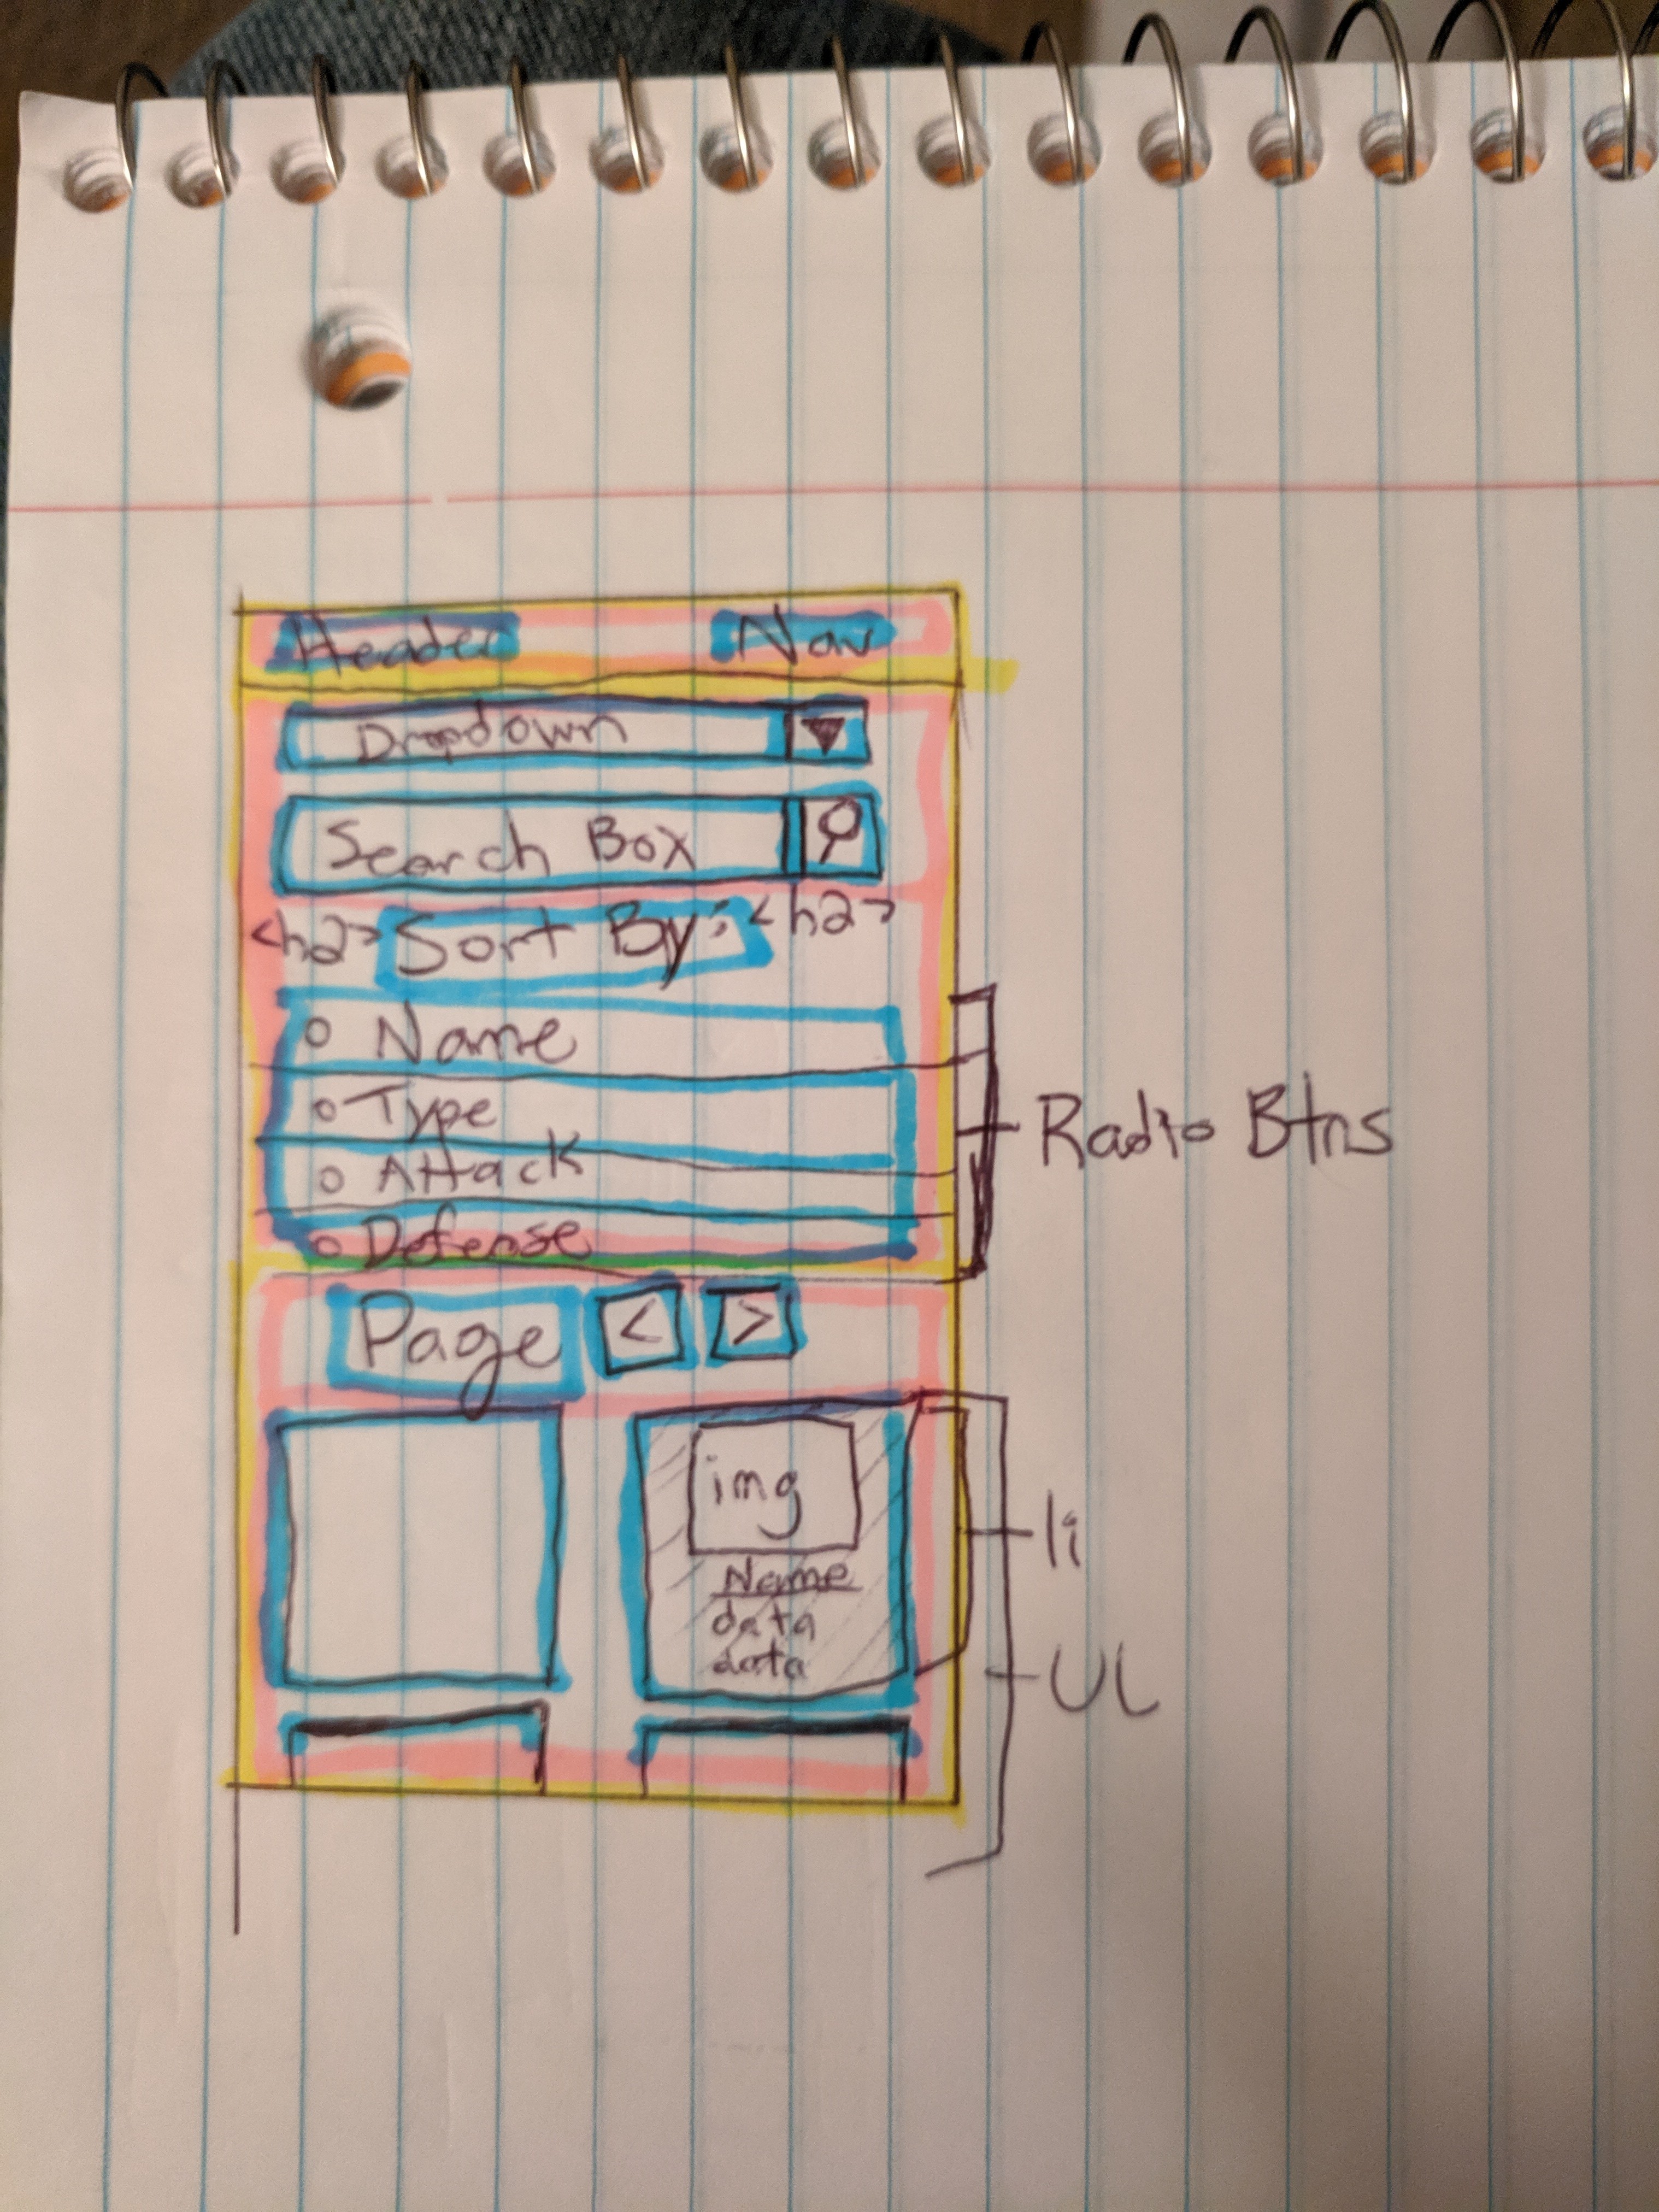 Header Nav
Dropdown
Search Box
<h2> Sort By: <h2>
Name
Type
Attack
Defense
Radio Btns
Page < >
img
Name
data
data
li
UL